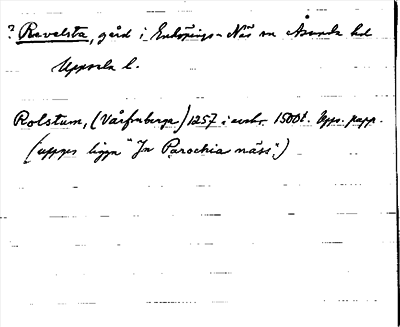 ? Revelsta, gård i Enköpings-Näs sn Åsunda hd
Uppsala l.
Rolstum, (Vårfruberga) 1257 i avskr. 1500t. Upps. papp.
(uppges ligga "In Parochia näss".)